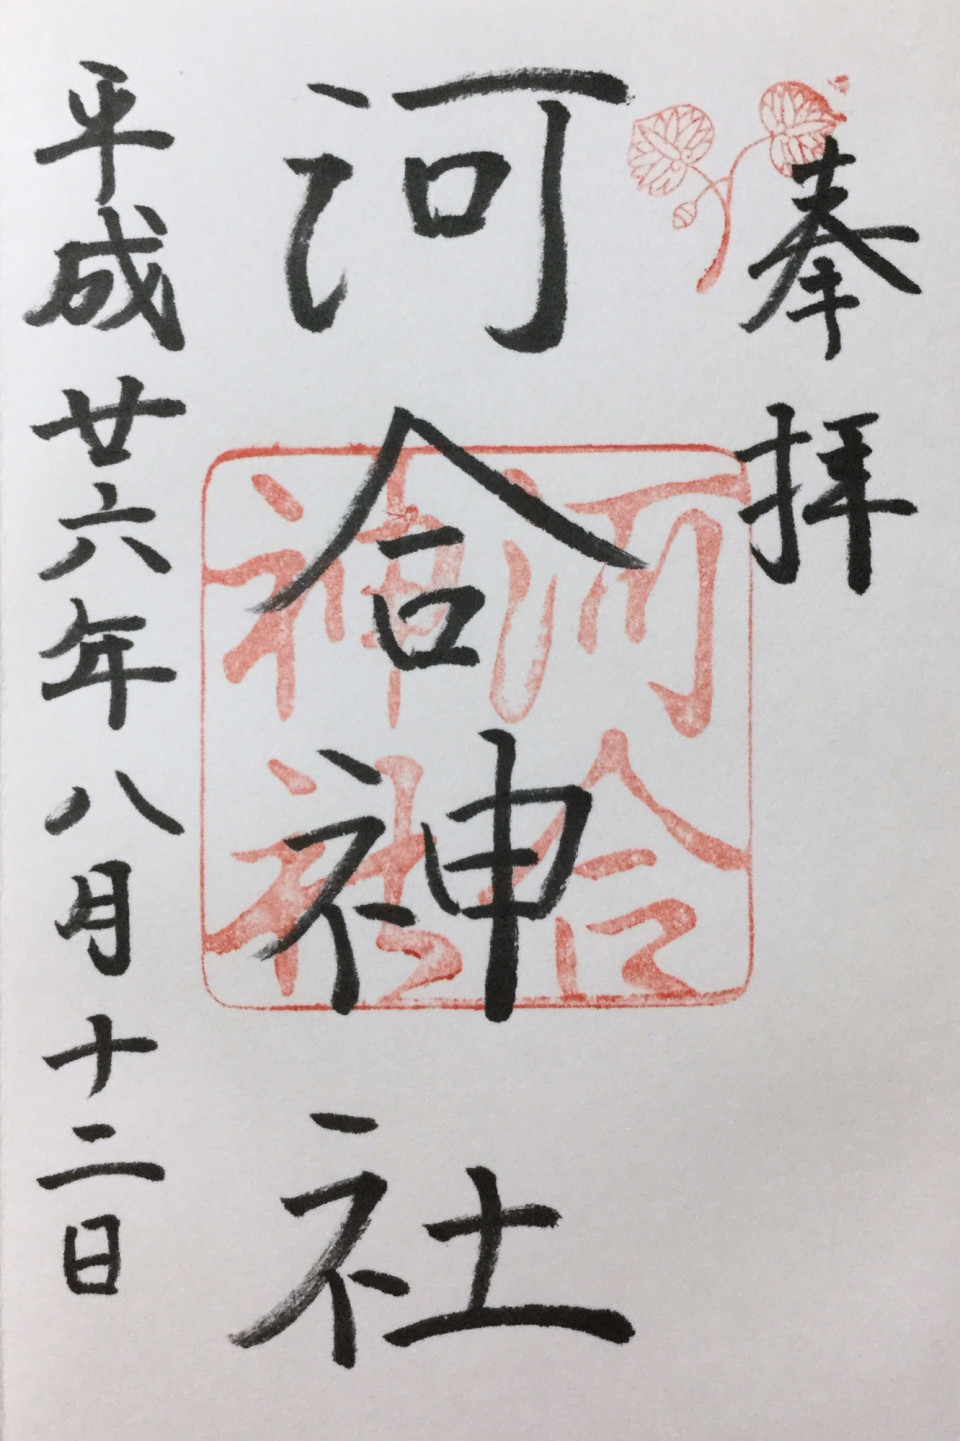 奉拝
河合神社
河合
神社
平成廿六年八月十二日